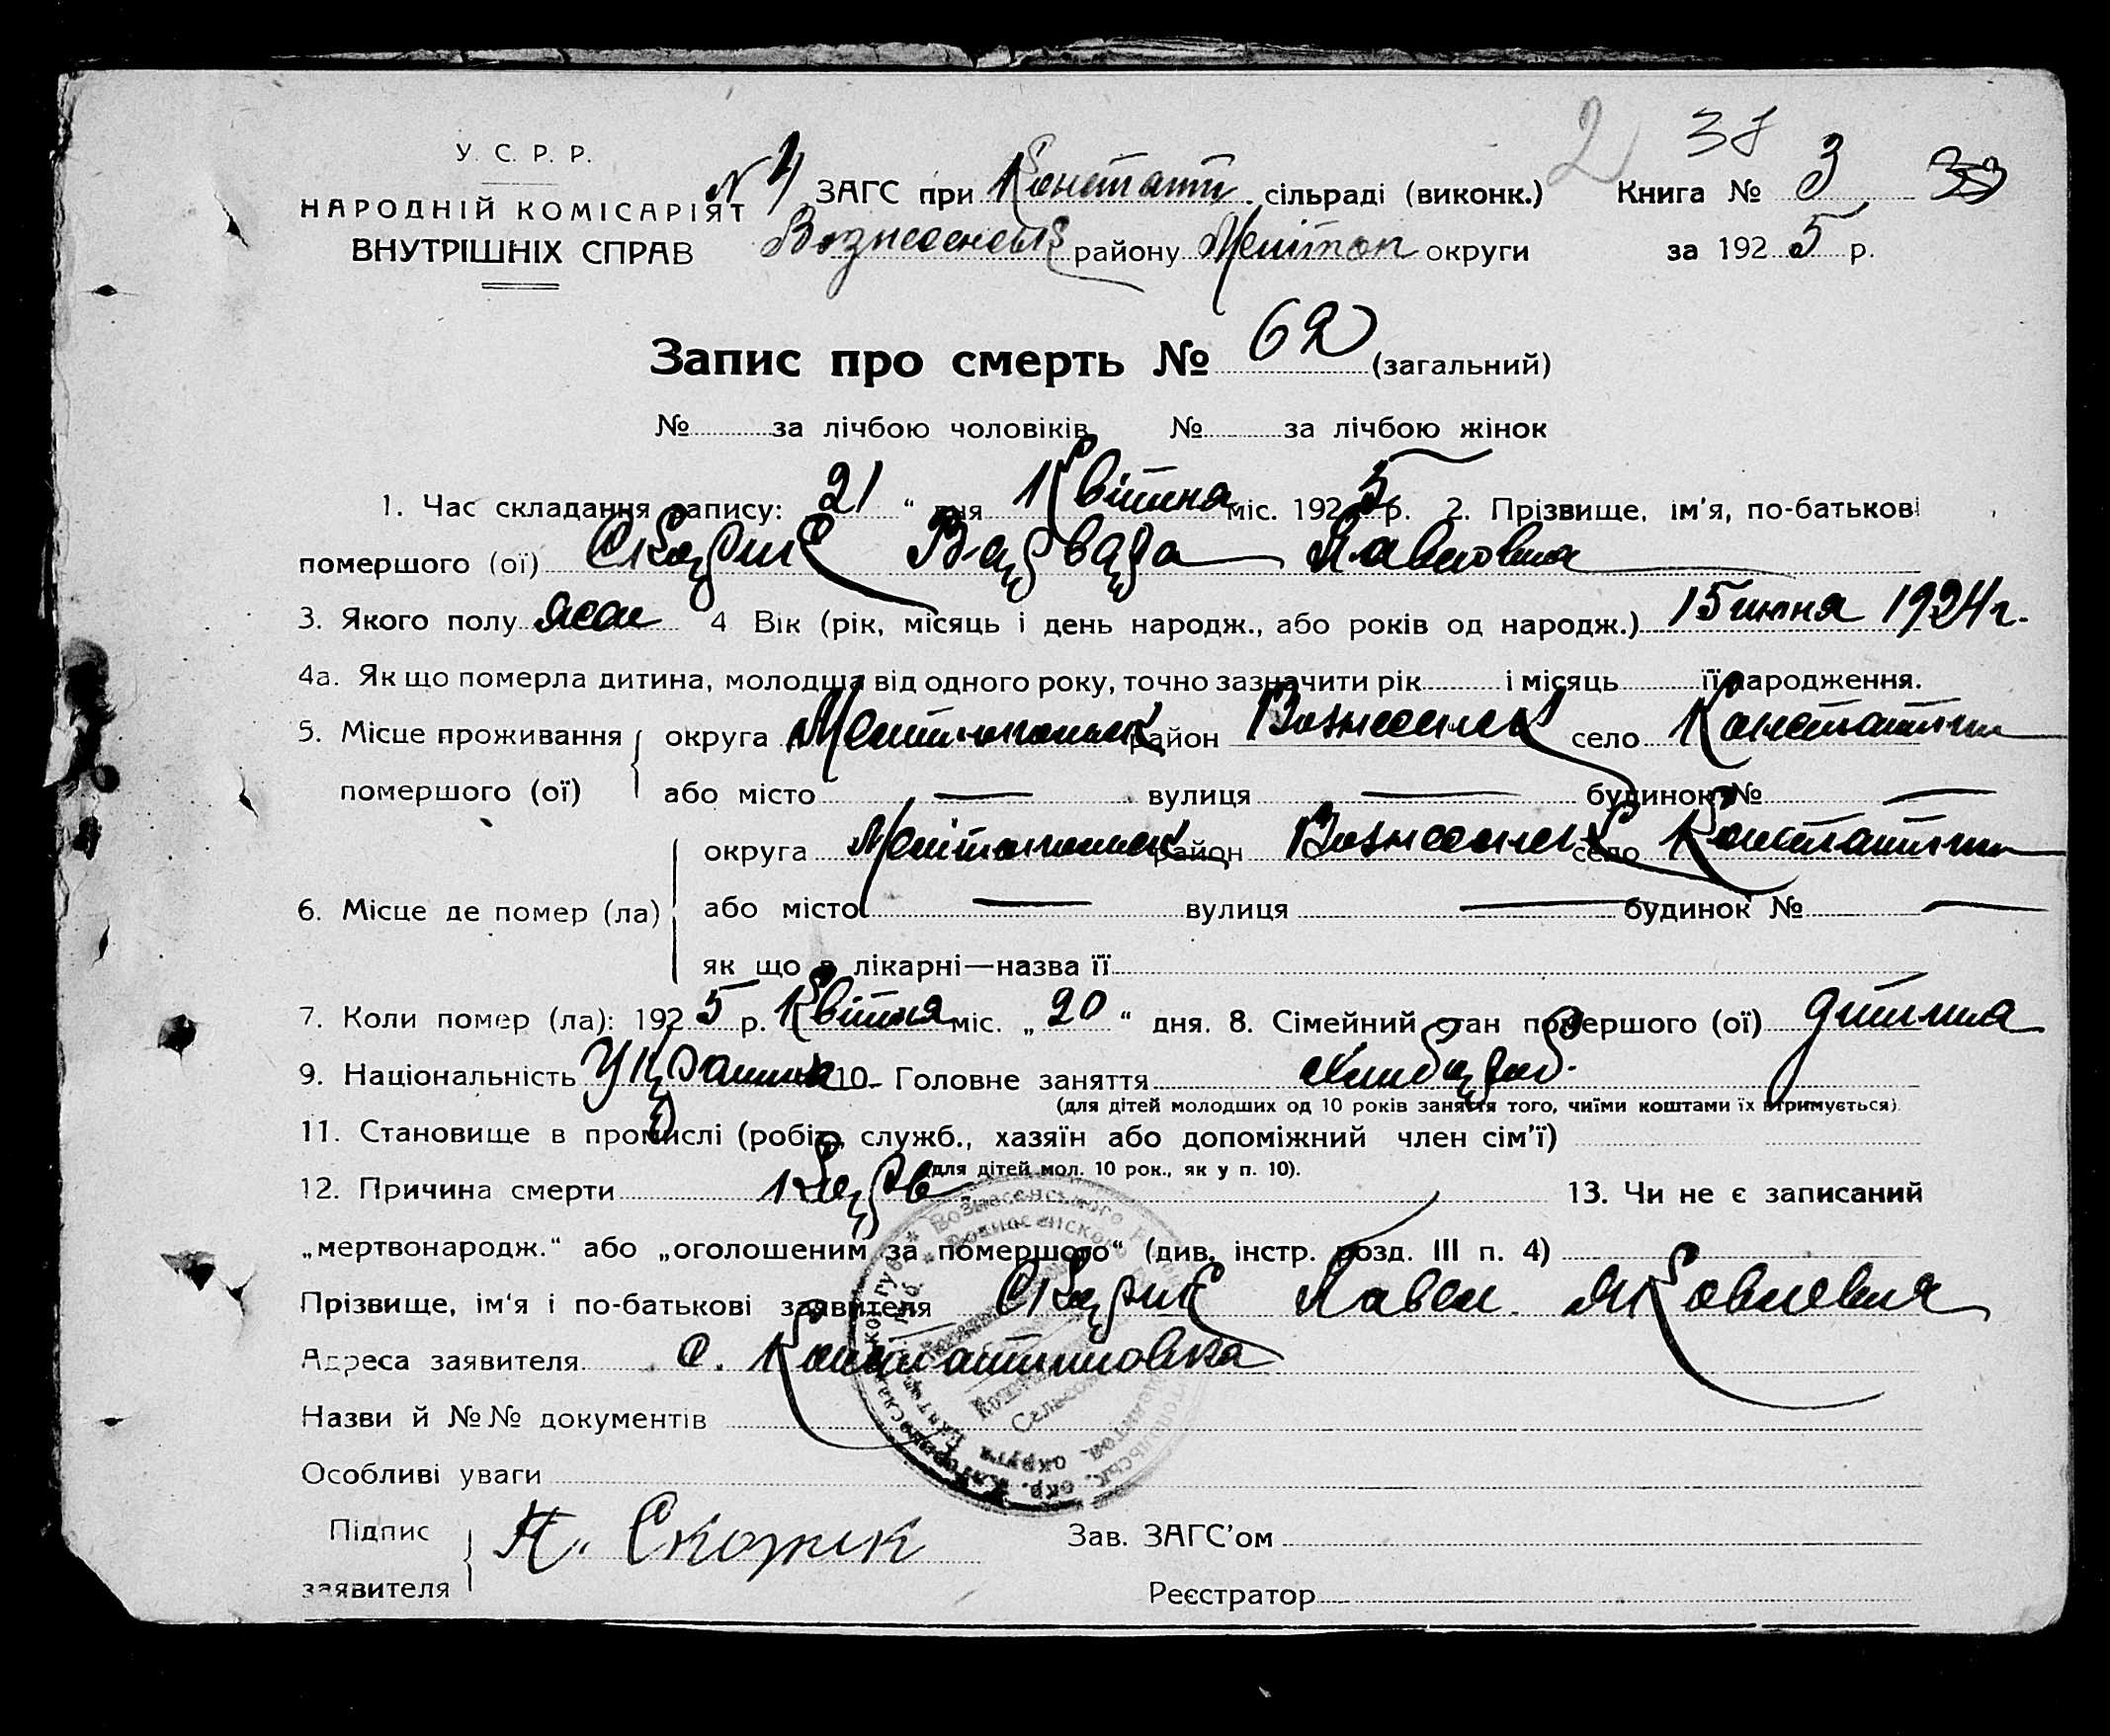 2 38
У. С. Р. Р.
НАРОДНІЙ КОМІСАРІЯТ
ВНУТРІШНІХ СПРАВ
N 4 ЗАГС при Констант. сільраді (виконк.) Книга № 3
Вознесенськ району Мелітоп округи за 1925 р.
Запис про смерть № 62 (загальний)
№ за лічбою чоловіків № за лічбою жінок
1. Час складання запису: 21 " дня Квітня міс. 1925 р. 2. Прізвище, ім'я, по-батькові
померш­ого (ої) Скорик Варвара Павловна
3. Якого полу жен 4 Вік (рік, місяць і день народж., або років од народж.) 15 июня 1924 г.
4а. Як що померла дитина, молодша від одного року, точно зазначити рік і місяць її народження.
5. Місце проживання округа Мелитопольск район Вознесенск село Константин
померш­ого (ої) або місто — вулиця — будинок № —
округа Мелітопольск район Вознесенск село Константин
6. Місце де помер (ла) або місто — вулиця — будинок № —
як що в лікарні—назва її
7. Коли помер (ла): 1925 р. Квітня міс. „20“ дня. 8. Сімейний стан померш­ого (ої) дитина
9. Національність Украинка 10. Головне заняття хлибороб.
(для дітей молодших од 10 років заняття того, чиїми коштами їх втримується)
11. Становище в промислі (робіт., служб., хазяїн або допоміжний член сім'ї)
для дітей мол. 10 рок., як у п. 10).
12. Причина смерти 13. Чи не є записаний
„мертвонародж.“ або „оголошеним за померш­ого“ (див. інстр. розд. III п. 4)
Прізвище, ім'я і по-батькові заявителя Скорик Павел Яковлевич
Адреса заявителя с. Константиновка
Назви й №№ документів
Особливі уваги
Підпис
заявителя П. Скорик
Зав. ЗАГС'ом
Реєстратор